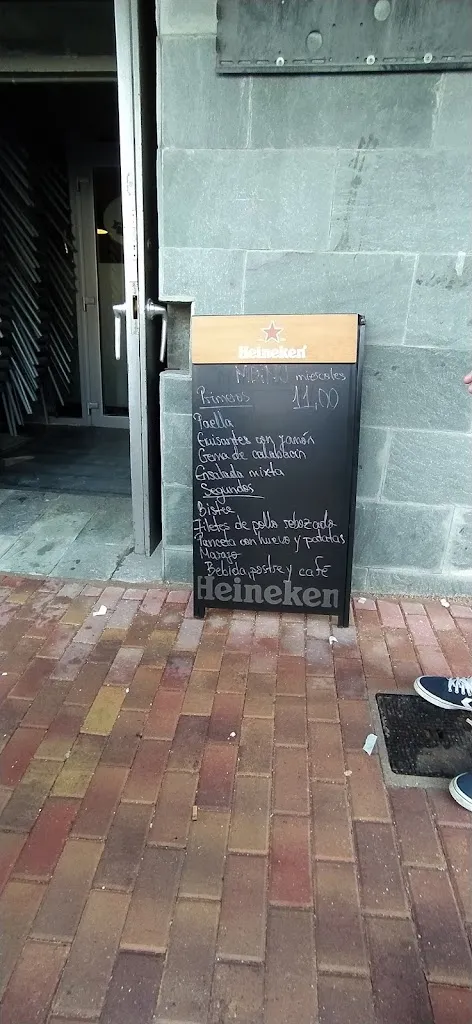 Heineken
MENÚ miércoles
Primeros 11,00
Paella
Guisantes con jamón
Crema de calabacín
Ensalada mixta
Segundos
Bistec
Filetes de pollo rebozado
Panceta con huevo y patatas
Marajo
Bebida, postre y café
Heineken